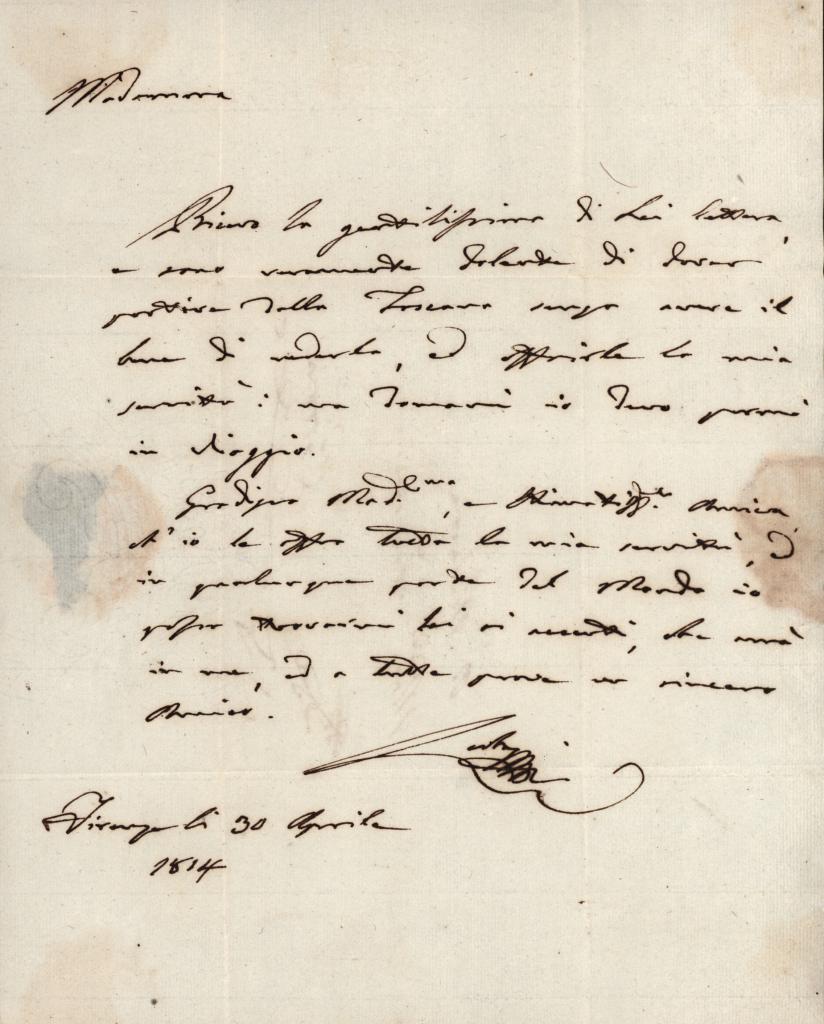 Madamma
Ricevo la gentilissima di Lei lettera,
e sono veramente dolente di dover
partire dalla Toscana senza avere il
bene di vederla, ed offrirle la mia
servitù: ma domani io devo pormi
in viaggio.
Gradisca Mad.ma, e Stimatiss.a Amica,
ch'io le offra tutta la mia servitù, ed
in qualunque parte del Mondo io
possa trovarmi lei si accerti, che avrà
in me, ed a tutte prove un sincero
Amico.
Firenze li 30 Aprile
1814